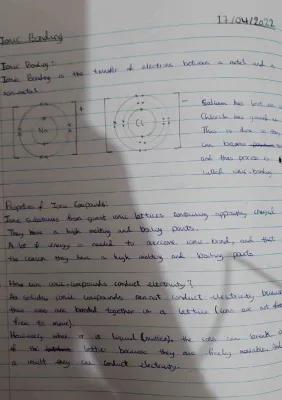 17/04/2022
Ionic Bonding
Ionic Bonding:
Ionic Bonding is the transfer of electrons between a metal and a
non-metal
+
-
Na
Cl
Sodium has lost an e
Chlorine has gained
This is done so they
can become
and this process is
called ionic-bonding
Properties of Ionic Compounds:
Ionic substances form giant ionic lattices containing oppositely charged
They have a high melting and boiling points.
A lot of energy is needed to overcome ionic bond, and that
the reason they have a high melting and boiling points
How can ionic-compounds conduct electricity?
As solids, ionic compounds cannot conduct electricity because
their ions are bonded together in a lattice (ions are not free
free to move).
However, when it is liquid (molten), the ions can break
of the lattice because they are freely moveable.
a result they can conduct electricity.